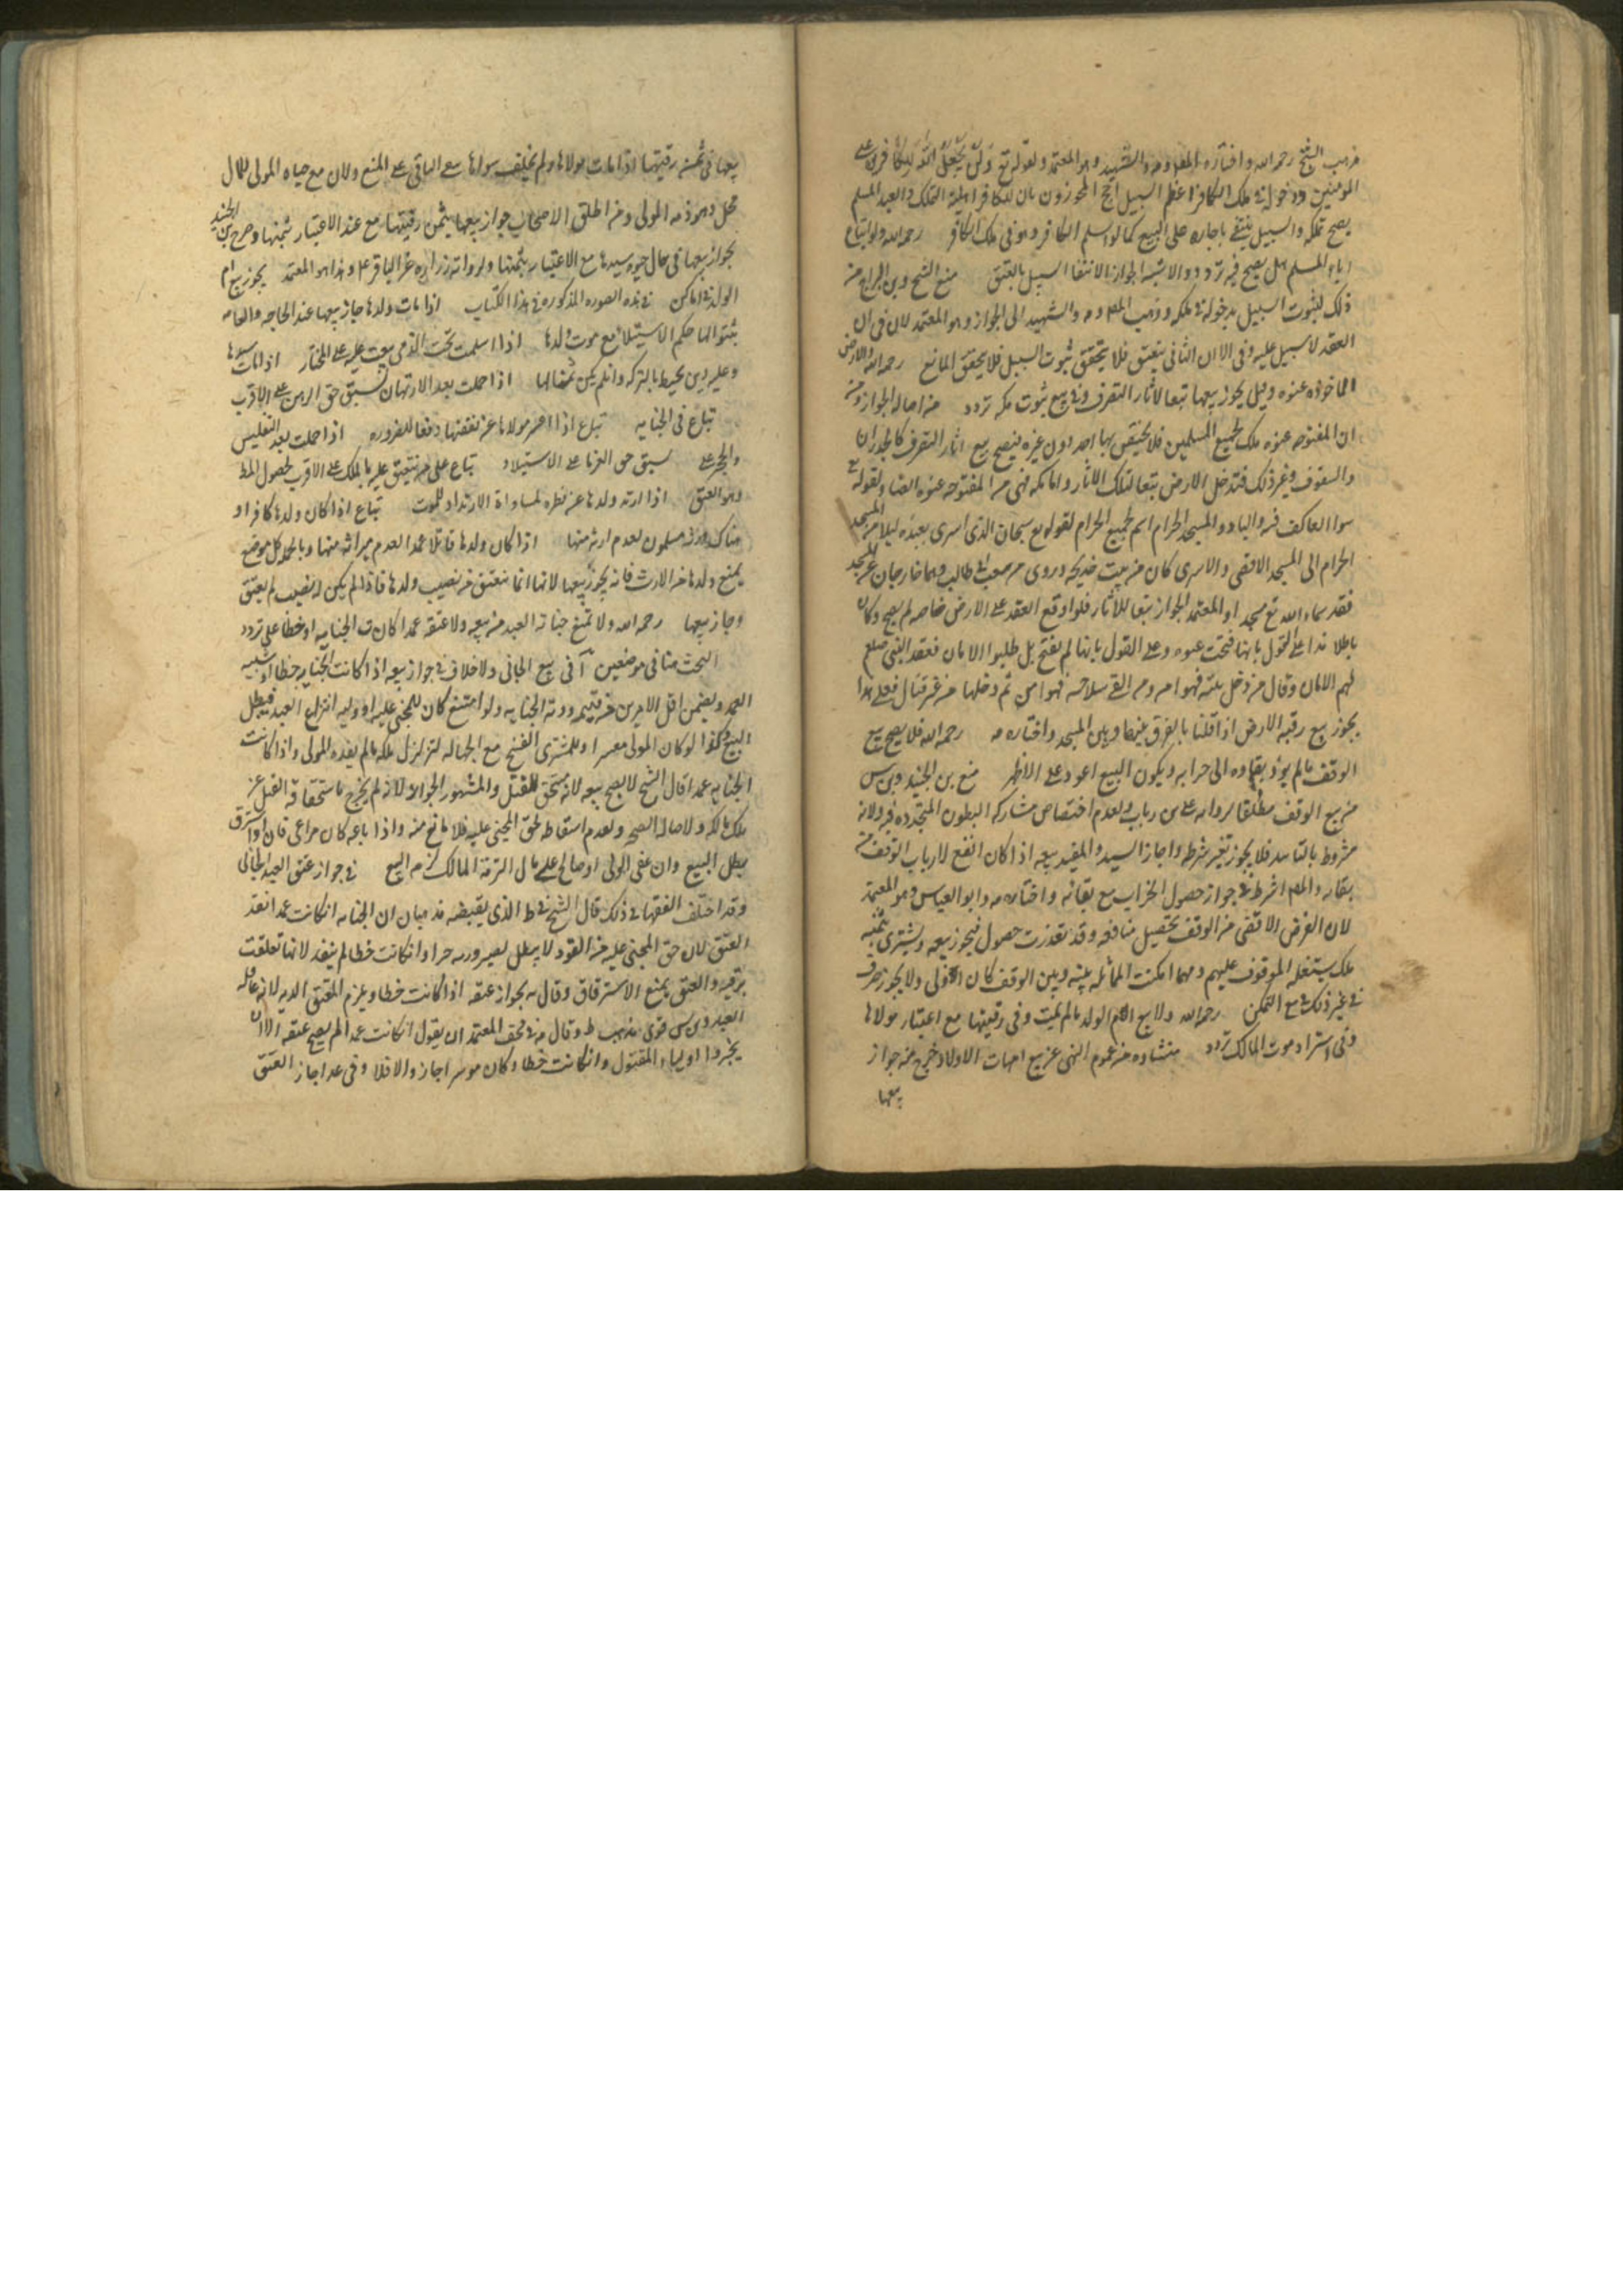 مذهب الشيخ رحمه الله واختاره المصنف والشهيد وهو المعتمد ولقوله تع ولن يجعل الله للكافرين على
المومنين ودخوله فى ملك الكافر اعظم السبيل احتج المجوزون بان للكافر اهلية التملك والعبد المسلم
يصح تملكه والسبيل ينتفى باجباره على البيع كما لو اسلم الكافر وهو فى ملك الكافر رحمه الله ولو ابتاع
اباه المسلم هل يصح فيه تردد والاشبه الجواز لانتفا السبيل بالعتق منع الشيخ وبن البراج من
ذلك لثبوت السبيل بدخوله فى ملكه وذهب المصنف والشهيد الى الجواز وهو المعتمد لان فى ان
العقد لا سبيل عليه وفى الان الثانى ينعتق فلا يتحقق ثبوت السبيل فلا يتحقق المانع رحمه الله والارض
الماخوذه عنوه وقيل يجوز بيعها تبعا لاثار التصرف وفى بيع بيوت مكه تردد من اصاله الجواز ومن
ان المفتوحه عنوه ملك لجميع المسلمين فلا يختص بها احد دون غيره فيصح بيع اثار التصرف كالجدران
والسقوف وغير ذلك فتدخل الارض تبعا لتلك الاثار واما مكه فهى من المفتوحه عنوه ايضا ولقوله تع
سوا العاكف فيه والباد والمسجد الحرام اسم لجميع الحرام لقوله تع سبحان الذى اسرى بعبده ليلا من المسجد
الحرام الى المسجد الاقصى والاسرى كان من بيت خديجه وروى من شعب ابى طالب وهما خارجان عن المسجد
فقد سماه الله تع مسجدا والمعتمد الجواز تبعا للاثار فلو اوقع العقد على الارض خاصه لم يصح وكان
باطلا هذا على القول بانها فتحت عنوه وعلى القول بانها لم تفتح بل طلبوا الامان فعقد النبى صلعم
لهم الامان وقال من دخل بيته فهو امن ومن القى سلاحه فهو امن ثم دخلها من غير قتال فعلى هذا
يجوز بيع رقبه الارض اذا قلنا بالفرق بينها وبين المسجد واختاره رحمه الله فلا يصح بيع
الوقف ما لم يود بقاوه الى خرابه ويكون البيع اعود على الاظهر منع بن الجنيد وبن س
من بيع الوقف مطلقا لروايه على بن رياب ولعدم اختصاص مشاركه البطون المتجدده فيه ولانه
مشروط بالتابيد فلا يجوز تغير شرطه واجاز السيد والمفيد بيعه اذا كان انفع لارباب الوقف من
بقاره والمصنف اشترط فى جوازه حصول الخراب مع بقائه واختاره وابو العباس وهو المعتمد
لان الغرض الاقصى من الوقف تحصيل منافعه وقد تعذرت حصول فيجوز بيعه ويشترى بثمنه
ملك يستغله الموقوف عليهم ومهما امكنت المماثله بينه وبين الوقف كان اولى ولا يجوز صرفه
فى غير ذلك مع التمكن رحمه الله ولا بيع ام الولد ما لم يمت وفى رقبتها مع اعتبار مولاها
وفى اشتراط موت المالك تردد منشاوه من عموم النهى عن بيع امهات الاولاد خرج منه جواز
بيعها
بيعها فى ثمن رقبتها اذا مات مولاها ولم يخلف سواها يبقى الباقى على المنع ولان مع حياه المولى للمال
محل وهو ذمه المولى ومن اطلق الاصحاب جواز بيعها بثمن رقبتها مع عدم الاعتبار بثمنها وصرح بن الجنيد
بجواز بيعها فى حال حيوه سيدها مع الاعتبار بثمنها ولروايه زراره عن الباقر ع وهذا هو المعتمد يجوز بيع ام
الولد فى اماكن فى هذه الصوره المذكوره فى هذا الكتاب اذا مات ولدها جاز بيعها عند الحاجه والعامه
يثبتوا لها حكم الاستيلاد مع موت ولدها اذا اسلمت تحت الذمى بيعت عليه على المختار اذا مات سيدها
وعليه دين يحيط بالتركه وان لم يكن ثمنا لها اذا حملت بعد الارتهان لسبق حق الرهن على الاقرب
تباع فى الجنايه تباع اذا اعسر مولاها عن نفقتها دفعا للضروره اذا حملت بعد التفليس
والحجر على لسبق حق الغرما على الاستيلاد تباع على من تنعتق عليه بالملك على الاقرب لحصول المط
وهو العتق اذا ارتد ولدها عن فطره لمساواة الارتداد للموت تباع اذا كان ولدها كافرا و
هناك ورثه مسلمون لعدم ارثه منها اذا كان ولدها قاتلا عمدا لعدم ميراثه منها وبالجمله كل موضع
يمنع ولدها من الارث فانه يجوز بيعها لانها انما تنعتق من نصيب ولدها فاذا لم يكن له نصيب لم تعتق
وجاز بيعها رحمه الله ولا تمنع جناية العبد من بيعه ولا عتقه عمدا كان ت الجنايه او خطا على تردد
البحث هنا فى موضعين آ فى بيع الجانى ولا خلاف فى جواز بيعه اذا كانت الجنايه خطا او شبيه
العمد ويضمن اقل الامرين من قيمته ودية الجنايه ولو امتنع كان للمجنى عليه او وليه انتزاع العبد فيبطل
البيع وكذا لو كان المولى معسرا وللمشترى الفسخ مع الجهاله لتزلزل ملكه ما لم يفده المولى واذا كانت
الجنايه عمدا قال الشيخ لا يصح بيعه لانه مستحق للقتل والمشهور الجواز لانه لم يخرج باستحقاقه القتل عن
ملك مالكه ولاصاله الصحه ولعدم اسقاطه لحق المجنى عليه فلا مانع منه واذا باعه كان مراعى فان او استرق
بطل البيع وان عفى الولى او صالح على مال التزمه المالك لزم البيع فى جواز عتق العبد الجانى
وقد اختلف الفقها فى ذلك قال الشيخ فى ط الذى يقتضيه مذهبنا ان الجنايه ان كانت عمدا نفذ
العتق لان حق المجنى عليه من القود لا يبطل بصيرورته حرا وان كانت خطا لم ينفذ لانها تعلقت
برقبته والعتق يمنع الاسترقاق وقال بجواز عتقه اذا كانت خطا ويلزم المعتق الديه لانه عاقله
العبد وبن س قوى مذهب ط وقال المعتمد ان يقول ان كانت عمدا لم يصح عتقه الا ان
يجيزوا اولياء المقتول وان كانت خطا وكان موسرا جاز والا فلا وفى عد اجاز العتق